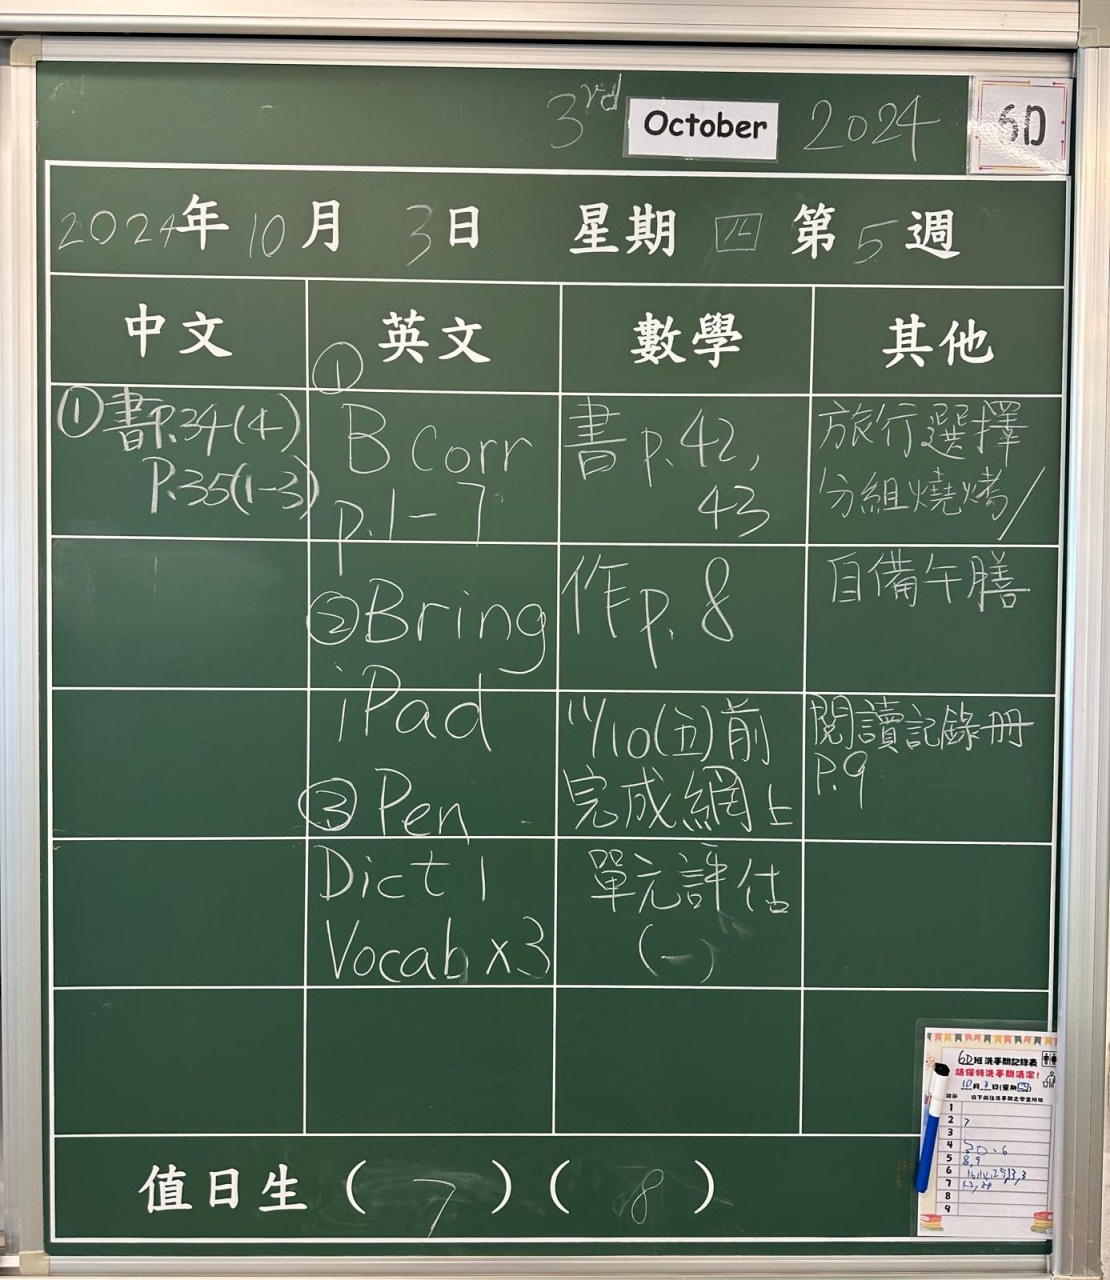 3rd October 2024 6D
2024年10月3日 星期四 第5週
中文 英文 數學 其他
①書P.34(4)
P.35(1-3)
①
B Corr
p.1-7
②Bring
iPad
③Pen
Dict 1
Vocab x3
書p.42,
43
作p.8
11/10(五)前
完成網上
單元評估
(一)
旅行選擇
分組燒烤/
自備午膳
閱讀記錄冊
P.9
值日生(7)(8)
6D班洗手間記錄表
請保持洗手間清潔!
10月3日(星期四)
1
2 7
3
4
5 8,9
6
7
8
9